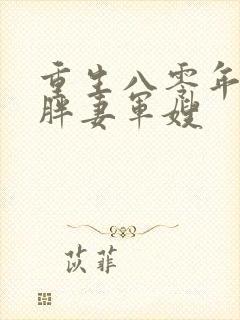 重生八零年
胖妻军嫂
苡菲